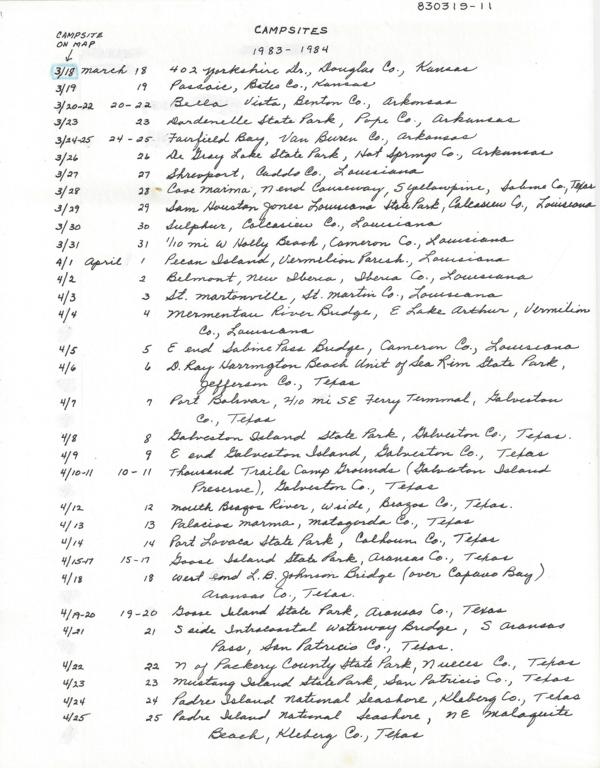 830319-11
CAMPSITES
1983-1984
CAMPSITE
ON MAP
3/18 March 18 402 Yorkshire Dr., Douglas Co., Kansas
3/19 19 Passaic, Bates Co., Kansas
3/20-22 20-22 Bella Vista, Benton Co., Arkansas
3/23 23 Dardenelle State Park, Pope Co., Arkansas
3/24-25 24-25 Fairfield Bay, Van Buren Co., Arkansas
3/26 26 De Gray Lake State Park, Hot Springs Co., Arkansas
3/27 27 Shreveport, Caddo Co., Louisiana
3/28 28 Cove Marina, N end Causeway, 5 yellowpine, Sabine Co, Texas
3/29 29 Sam Houston Jones Louisiana State Park, Calcasieu Co., Louisiana
3/30 30 Sulphur, Calcasieu Co., Louisiana
3/31 31 1/10 mi W Holly Beach, Cameron Co., Louisiana
4/1 April 1 Pecan Island, Vermilion Parish., Louisiana
4/2 2 Belmont, New Iberia, Iberia Co., Louisiana
4/3 3 St. Martonville, St. Martin Co., Louisiana
4/4 4 Mermentau River Bridge, E Lake Arthur, Vermilion
Co., Louisiana
4/5 5 E end Sabine Pass Bridge, Cameron Co., Louisiana
4/6 6 D. Ray Harrington Beach Unit of Sea Rim State Park,
Jefferson Co., Texas
4/7 7 Port Bolivar, 2/10 mi SE Ferry Terminal, Galveston
Co., Texas
4/8 8 Galveston Island State Park, Galveston Co., Texas.
4/9 9 E end Galveston Island, Galveston Co., Texas
4/10-11 10-11 Thousand Trails Camp Grounds (Galveston Island
Preserve), Galveston Co., Texas
4/12 12 Mouth Brazos River, W side, Brazos Co., Texas.
4/13 13 Palacios Marina, Matagorda Co., Texas
4/14 14 Port Lavaca State Park, Calhoun Co., Texas
4/15-17 15-17 Goose Island State Park, Aransas Co., Texas
4/18 18 West end L.B. Johnson Bridge (over Capano Bay)
Aransas Co., Texas.
4/19-20 19-20 Goose Island State Park, Aransas Co., Texas
4/21 21 S side Intracoastal Waterway Bridge, S Aransas
Pass, San Patricio Co., Texas.
4/22 22 N of Packery County State Park, Nueces Co., Texas
4/23 23 Mustang Island State Park, San Patricio Co., Texas
4/24 24 Padre Island National Seashore, Kleberg Co., Texas
4/25 25 Padre Island National Seashore, NE Malaquite
Beach, Kleberg Co., Texas